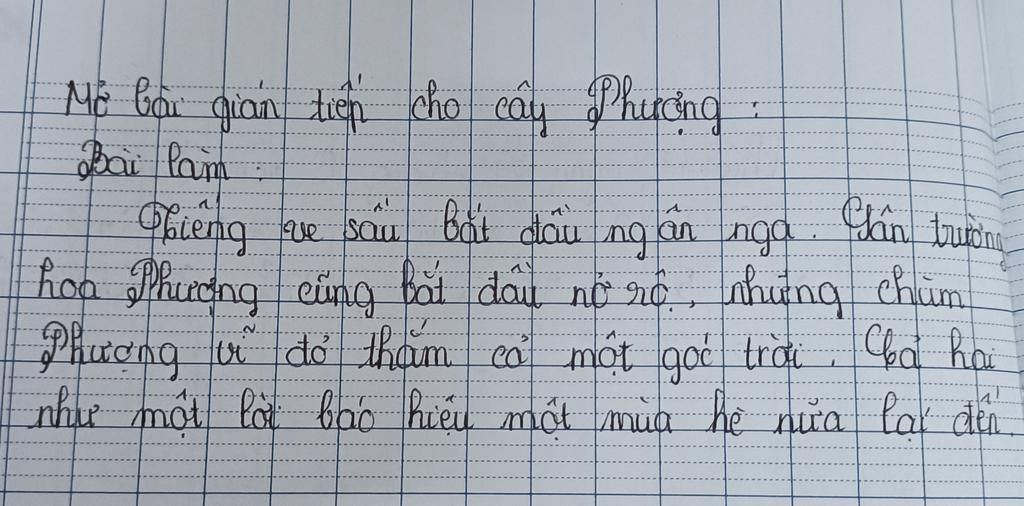 Mở bài gián tiếp cho cây Phượng :
Bài làm :
Tiếng ve sầu bắt đầu ngân nga. Sân trường
hoa Phượng cũng bắt đầu nở rộ, những chùm
Phượng vĩ đỏ thắm cả một góc trời. Cả hai
như một lời báo hiệu một mùa hè nữa lại đến.